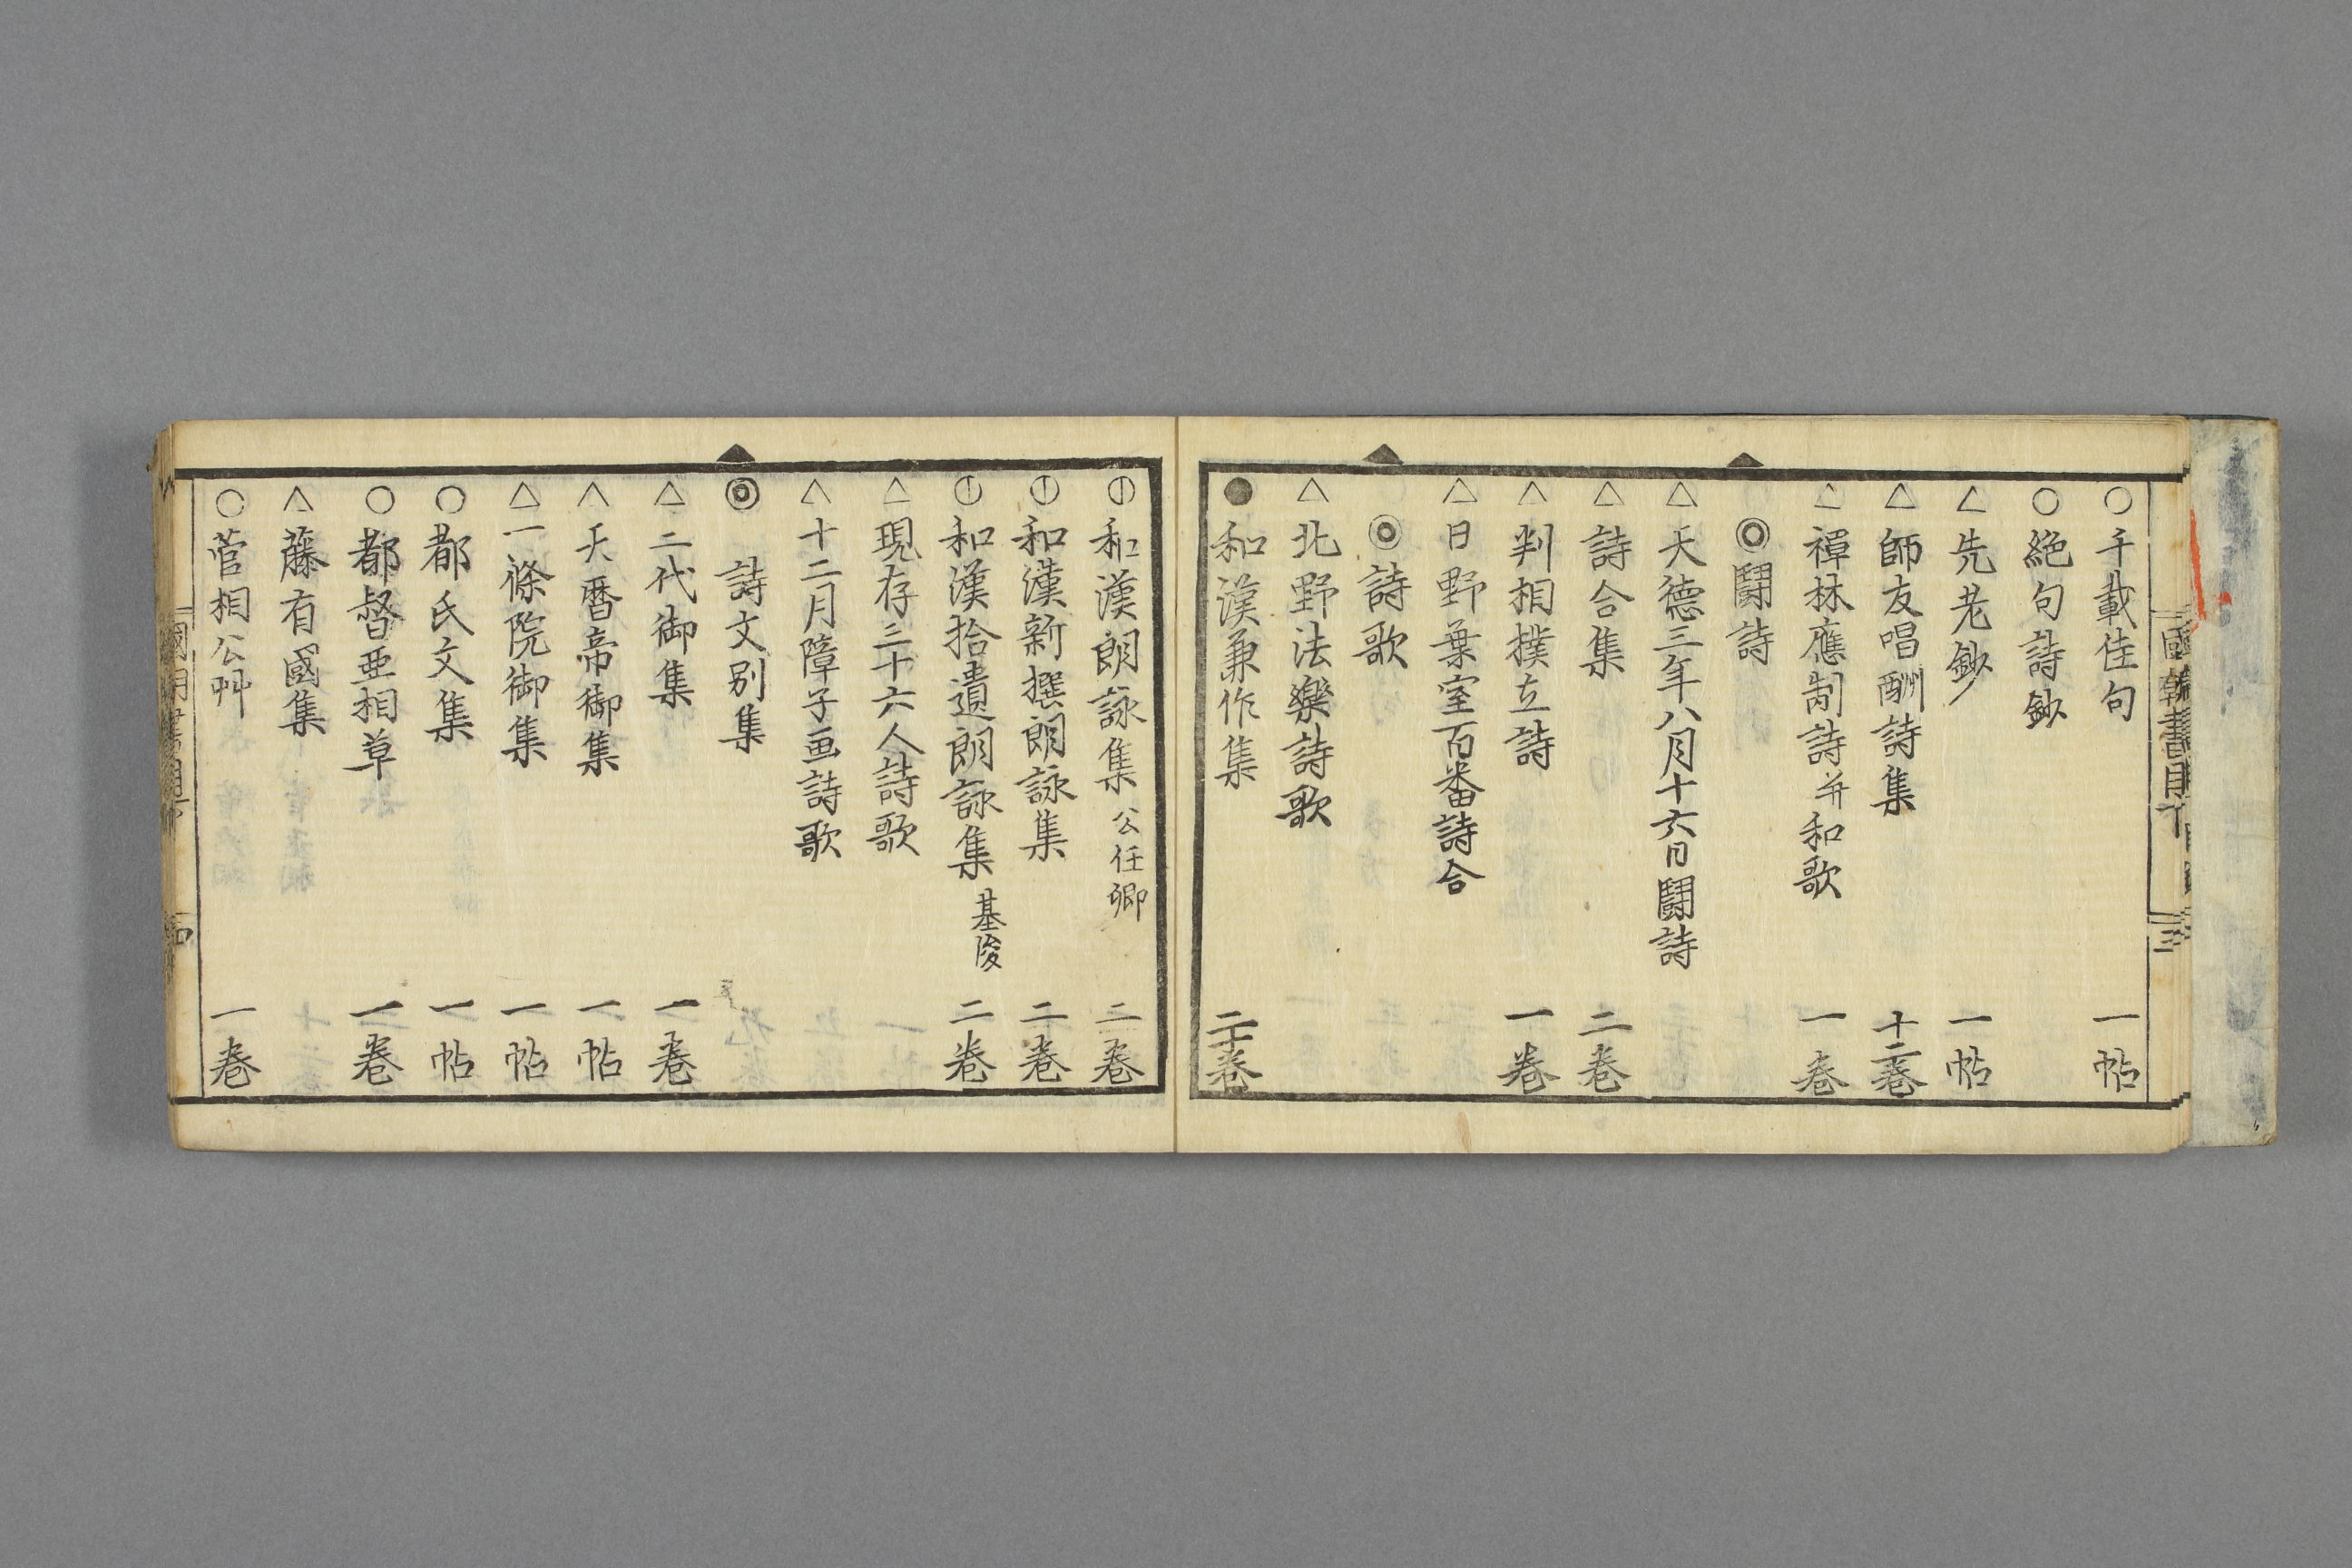 ○千載佳句 一帖
○絶句詩鈔
△先老鈔 一帖
△師友唱酬詩集 十二巻
△禪林應制詩并和歌 一巻
◎鬪詩
△天德三年八月十六日鬪詩
△詩合集 二巻
△判相撲立詩 一巻
△日野葉室百番詩合
◎詩歌
△北野法樂詩歌
●和漢兼作集 二十巻
⦶和漢朗詠集 公任卿 二巻
⦶和漢新撰朗詠集 二巻
⦶和漢拾遺朗詠集 基俊 二巻
△現存三十六人詩歌
△十二月障子画詩歌
◎詩文別集
△二代御集 一巻
△天暦帝御集 一帖
△一條院御集 一帖
○都氏文集 一帖
○都督亜相草 一巻
△藤有國集
○菅相公艸 一巻